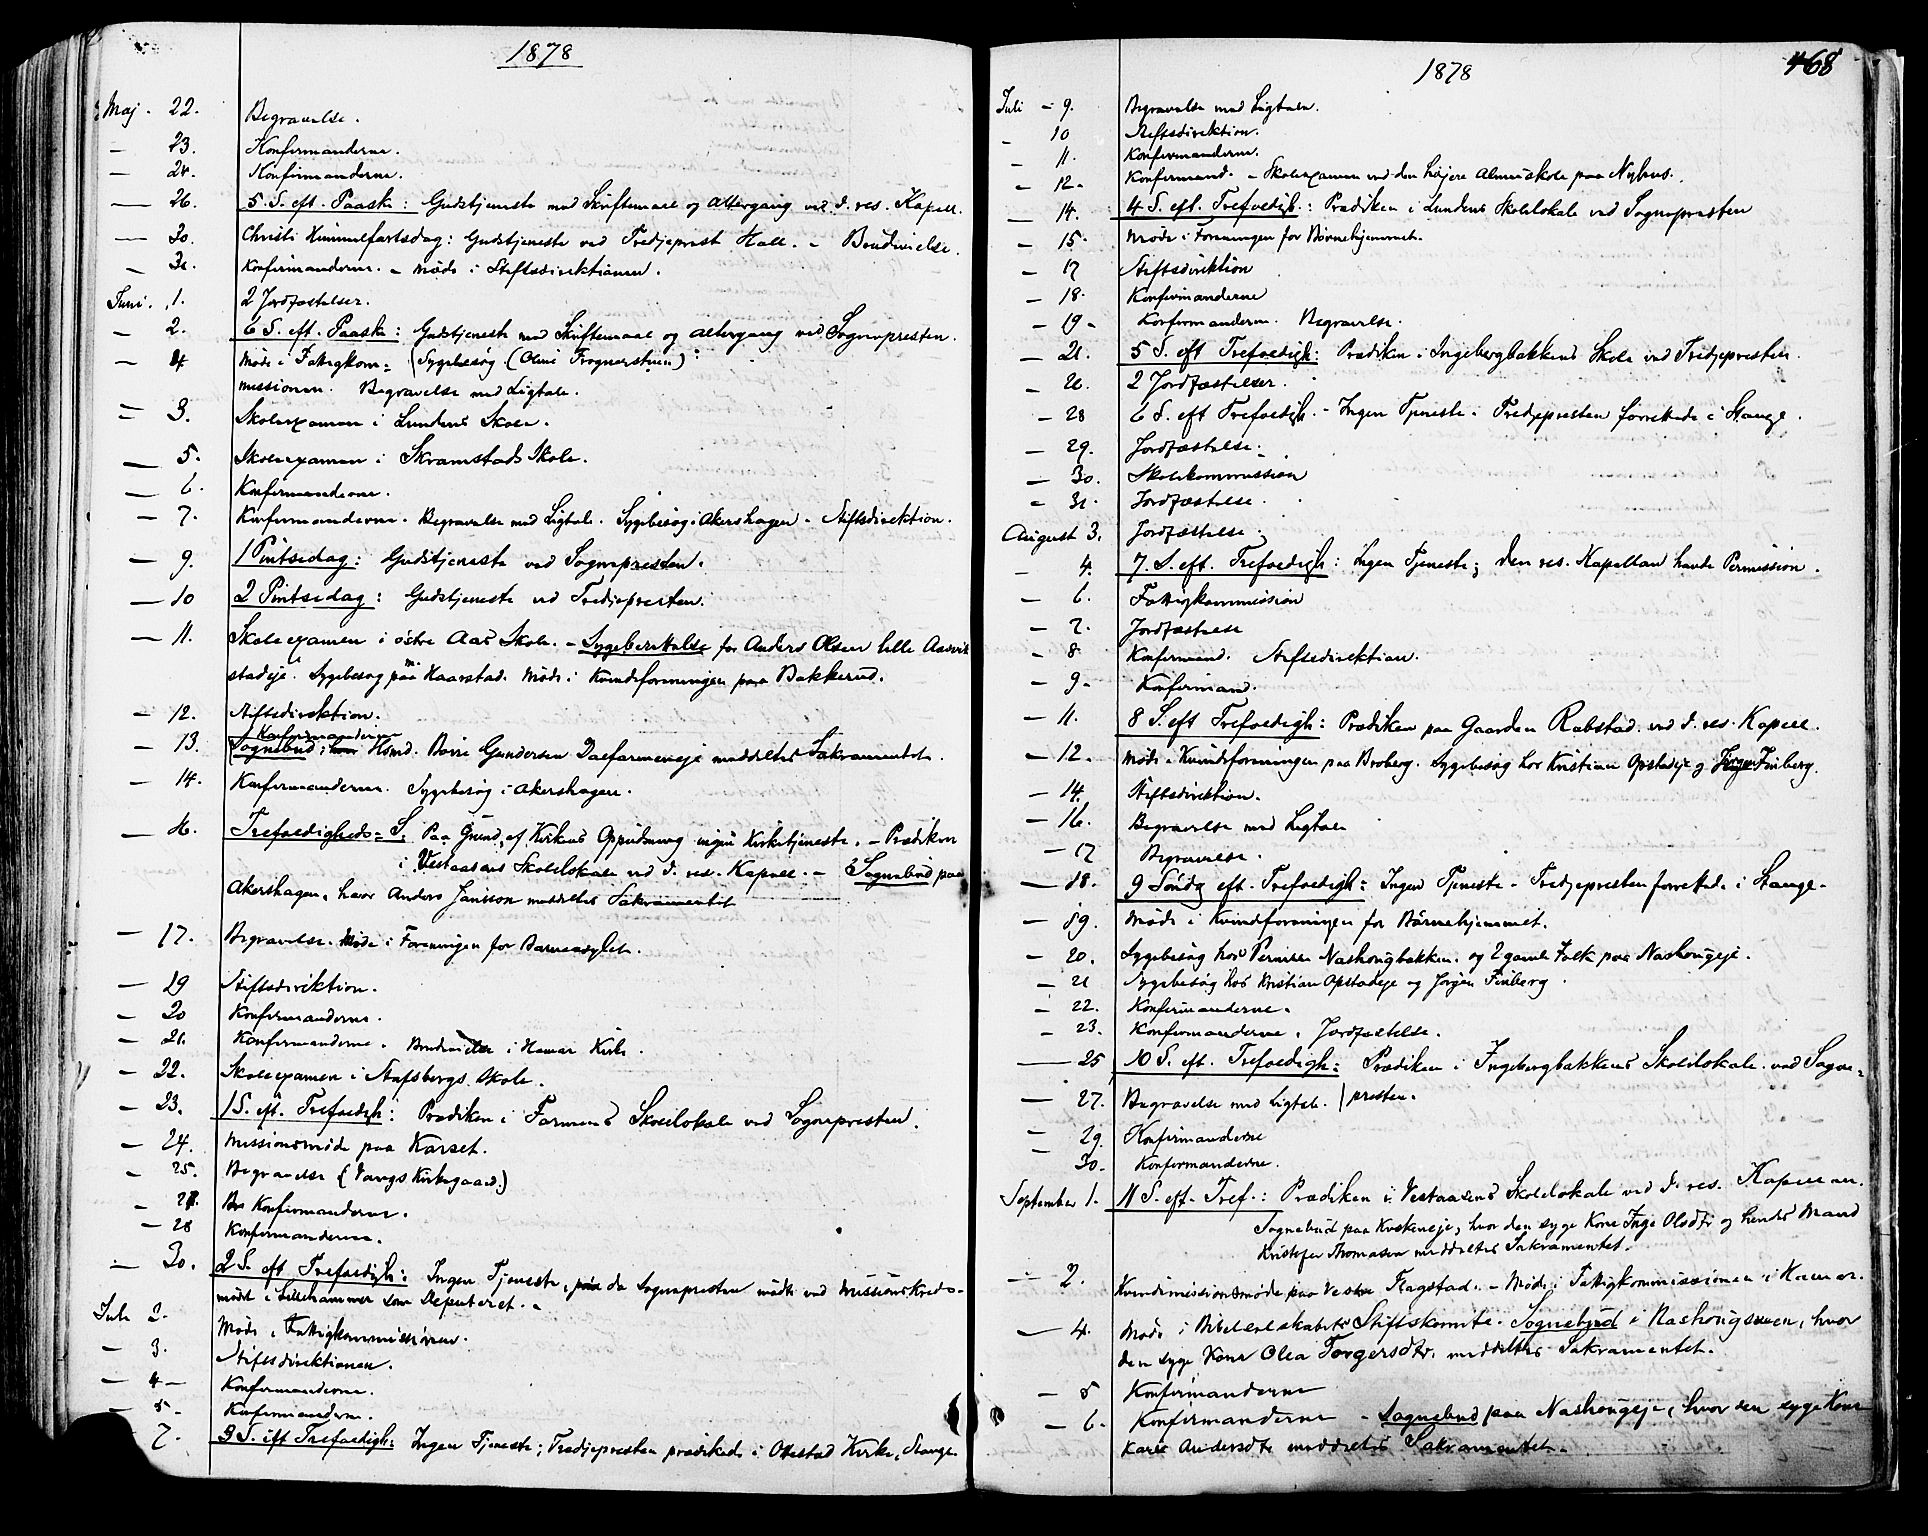 1878
Maj. 22. Begravelse.
— 23. Konfirmanderne.
— 24. Konfirmanderne.
— 26. 5. S. eft. Paaske: Gudstjeneste med Skriftemaal og Altergang ved d. res. Kapell.
— 30. Christi Himmelfartsdag: Gudstjeneste ved Tredjeprest Hall. – Brudevielse.
— 31. Konfirmanderne. – Møde i Stiftsdirektionen.
Juni. 1. 2 Jordfæstelser.
— 2. 6 S. eft. Paaske: Gudstjeneste med Skriftemaal og Altergang ved Sognepresten.
— 4 Møde i Fattigkom= (Sygebesøg (Oline Frognerstuen)
missionen. Begravelse med Ligtale.
— 3. Skoleexamen i Lundens Skole.
— 5. Skoleexamen i Skramstads Skole.
— 6. Konfirmanderne.
— 7. Konfirmanderne. Begravelse med Ligtale. Sygebesøg i Akershagen. Stiftsdirektion.
— 9. 1 Pintsedag: Gudstjeneste ved Sognepresten.
— 10 2 Pintsedag: Gudstjeneste ved Tredjepresten.
— 11. Skoleexamen i østre Aas Skole. – Sygeberettelse for Anders Olsen lille
stadeje. Sygebesøg paa Haarstad. Møde i Kvindeforeningen paa Bakkerud.
— 12. Stiftsdirektion.
Konfirmanderne
— 13. Sognebud: Husmd. Gundersen meddeltes Sakramentet.
— 14. Konfirmanderne. Sygebesøg i Akershagen.
— 16. Trefoldigheds=S. Paa Grund af Kirkens Oppudsning ingen Kirketjeneste. – Prædiken
i Vestaasens Skolelokale ved d. res. Kapell. – Sognebud paa
Akershagen, hvor Anders Jansson meddeltes Sakramentet
— 17. Begravelse. Møde i Foreningen for Børneasylet.
— 19 Stiftsdirektion.
— 20 Konfirmanderne.
— 21. Konfirmanderne. Brudevielse i Hamar Kirke.
— 22. Skoleexamen i Stafsbergs Skole.
— 23. 1 S. eft. Trefoldigh: Prædiken i Farmens Skolelokale ved Sognepresten.
— 24. Missionsmøde paa Karset.
— 25. Begravelse (Vangs Kirkegaard.)
— 27. Konfirmanderne.
— 28 Konfirmanderne.
— 30. 2 S. eft. Trefoldigh: Ingen Tjeneste, da Sognepresten mødte ved Missionskreds-
mødet i Lillehammer som Deputeret.
Juli 2. Møde i Fattigkommissionen.
— 3. Stiftsdirektionen.
— 4 – Konfirmanderne.
— 5 – Konfirmanderne.
— 7. 3 S. eft Trefoldigh: Ingen Tjeneste; Tredjepresten prædikede i Ottestad Kirke, Stange
1878
468
Juli – 9. Begravelse med Ligtale.
– 10 Stiftsdirektion.
– 11. Konfirmanderne.
– 12. Konfirmand. – Skoleexamen ved den høiere Almueskole paa Nyhus.
– 14. 4 S. eft. Trefoldigh.: Prædiken i Lundens Skolelokale ved Sognepresten
– 15. Møde i Foreningen for Børnehjemmet.
– 17 Stiftsdirektion
– 18. Konfirmanderne
– 19 – Konfirmanderne. Begravelse.
– 21. 5 S. eft Trefoldigh: Prædiken i Ingebergbakkens Skole ved Tredjepresten.
– 26. 2 Jordfæstelser.
– 28 6 S. eft Trefoldigh. – Ingen Tjeneste. Tredjepresten forrettede i Stange.
– 29. Jordfæstelse.
– 30. Skolekommission
– 31. Jordfæstelse.
August 3. Jordfæstelse.
– 4. 7. S. eft. Trefoldigh: Ingen Tjeneste; den res. Kapellan havde Permission.
– 6. Fattigkommission
– 7. Jordfæstelse
– 8. Konfirmand. Stiftsdirektion.
– 9 – Konfirmand.
– 11. 8 S. eft Trefoldigh: Prædiken paa Gaarden Rabstad ved d. res. Kapell.
– 12. Møde i Kvindeforeningen paa Broberg. Sygebesøg hos Kristian Opstadeje og Jørgen Finberg.
– 14. Stiftsdirektion.
– 16. Begravelse med Ligtale
– 17 Begravelse.
– 18. 9 Søndg eft. Trefoldigh: Ingen Tjeneste – Tredjepresten forrettede i Stange.
– 19. Møde i Kvindeforeningen for Børnehjemmet.
– 20. Sygebesøg hos Pernille Nashougbakken og 2 gamle Folk paa Nashougeje.
– 21 Sygebesøg hos Kristian Opstadeje og Jørgen Finberg.
– 22. Konfirmanderne.
– 23. Konfirmanderne. Jordfæstelse.
– 25 10 S. eft. Trefoldigh: Prædiken i Ingebergbakkens Skolelokale ved Sogne=
– 27. Begravelse med Ligtale. | presten.
– 29. Konfirmanderne
– 30. Konfirmanderne.
September 1. 11 S. eft. Tref.: Prædiken i Vestaasens Skolelokale ved d. res. Kapellan.
Sognebud paa, hvor den syge Kone Inge Olsdtr og hendes Mand
Kristofer Thomassen meddeltes Sakramentet.
– 2. Kvindemissionsmøde paa Vestre Flagstad. – Møde i Fattigkommissionen i Hamar.
– 4. Møde i Bibelselskabets Stiftskomite. Sognebud i Nashougsveen, hvor
den syge Kone Olea Torgersdtr. meddeltes Sakramentet.
– 5 Konfirmanderne
– 6. Konfirmanderne – Sognebud paa Nashougeje, hvor den syge Kone
Kari Andersdtr meddeltes Sakramentet.